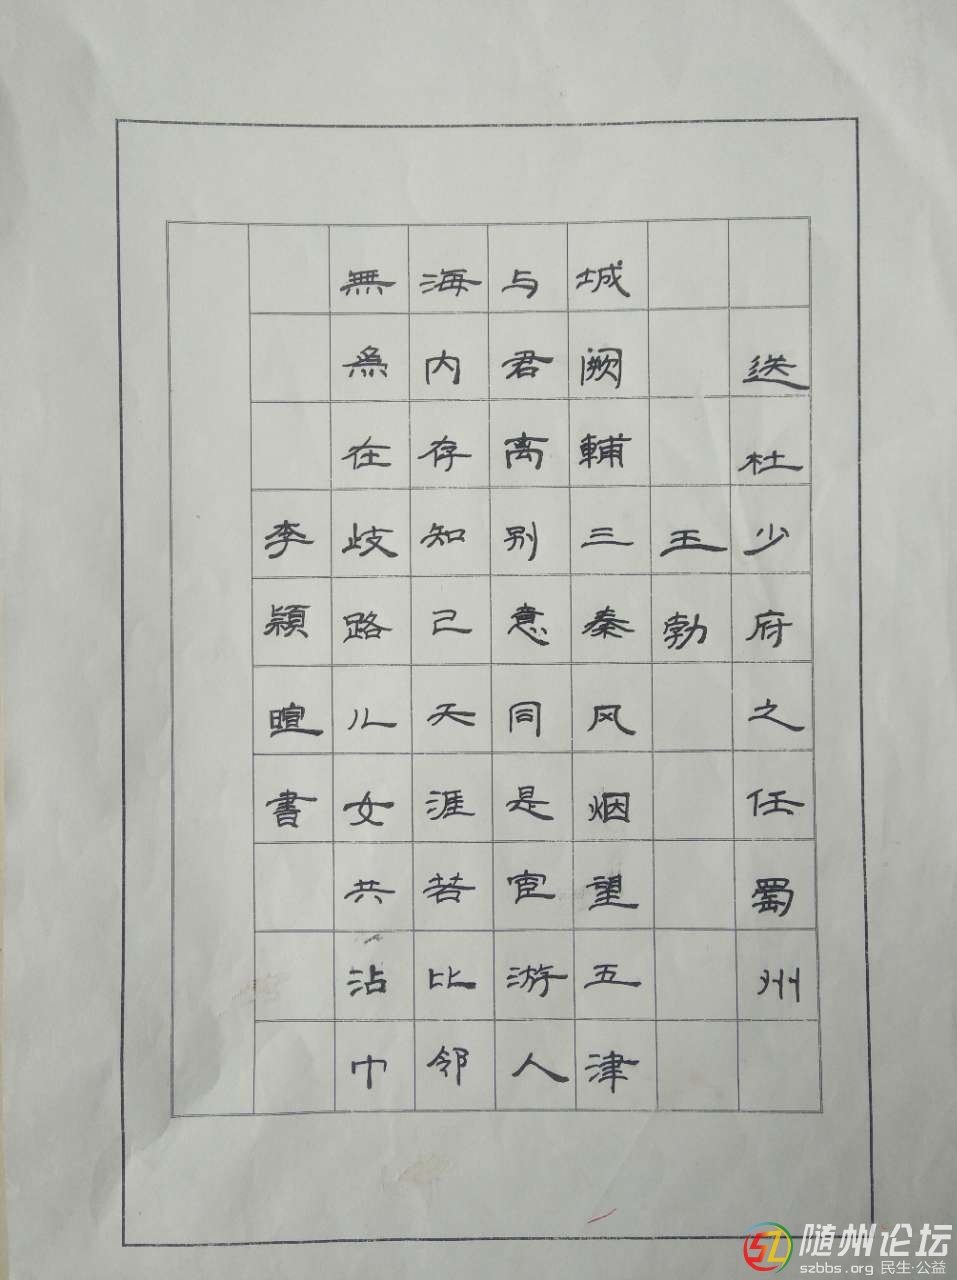 送杜少府之任蜀州
王勃
城阙輔三秦风烟望五津
与君离别意同是宦游人
海内存知己天涯若比邻
無為在歧路儿女共沾巾
李穎暄書
随州论坛
szbbs.org 民生·公益